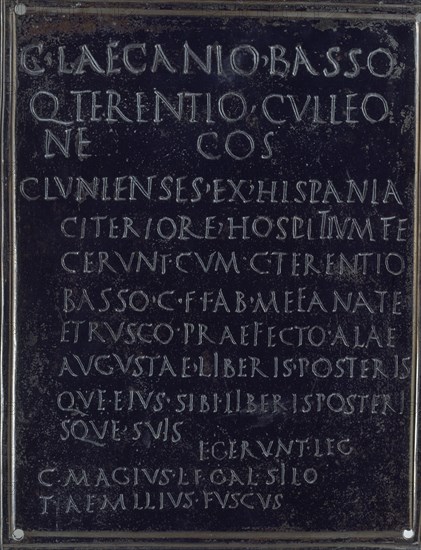 C·LAECANIO·BASSO
Q·TERENTIO·CVLLEO
NE COS
CLVNIENSES·EX·HISPANIA
CITERIORE·HOSPITIVM FE
CERVNT·CVM·C·TERENTIO
BASSO·C·F·FAB·MEFANATE
ETRVSCO·PRAEFECTO·ALAE
AVGVSTAE·LIBERIS·POSTERIS
QVE·EIVS·SIBI·LIBERIS·POSTERI
SQVE·SVIS
EGERVNT·LEG
C·MAGIVS·L·F·GAL·SILO
T·AEMILIVS·FVSCVS